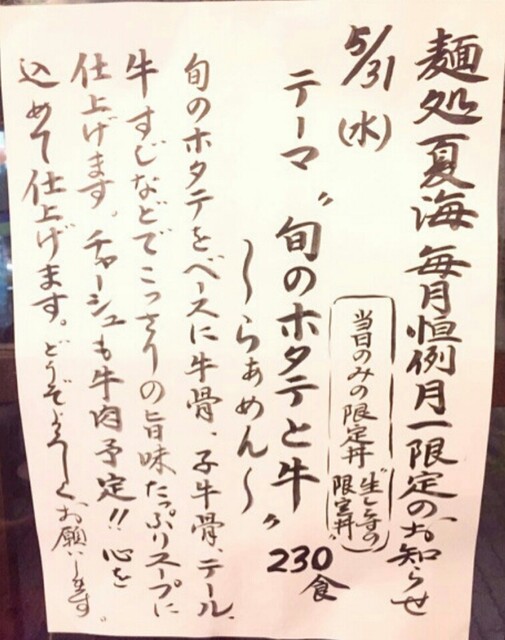 麺処 夏海 毎月恒例月一限定のお知らせ
5/31(水)
当日のみの限定丼
"生しらすの限定丼"
テーマ "旬のホタテと牛
〜らぁめん〜"
230食
旬のホタテをベースに牛骨、子牛骨、テール、
牛すじなどでこってりの旨味たっぷりスープに
仕上げます。チャーシュも牛肉予定!! 心を
込めて仕上げます。どうぞよろしくお願いします。